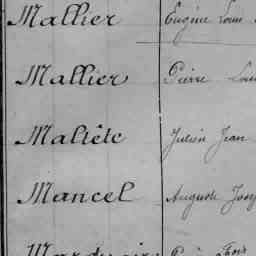 Mallier Eugène Louis
Mallier Pierre Louis
Maltête Julien Jean
Mancel Auguste Josep